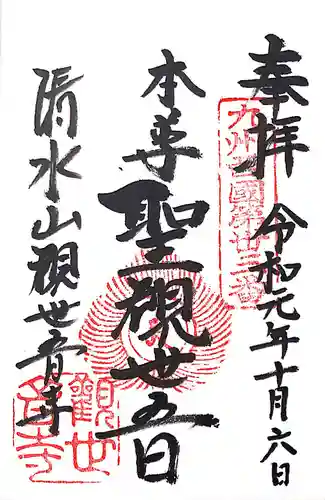 奉拝
令和元年十月六日
九州西國第卅三番
本尊
聖観世音
清水山観世音寺
観世音寺